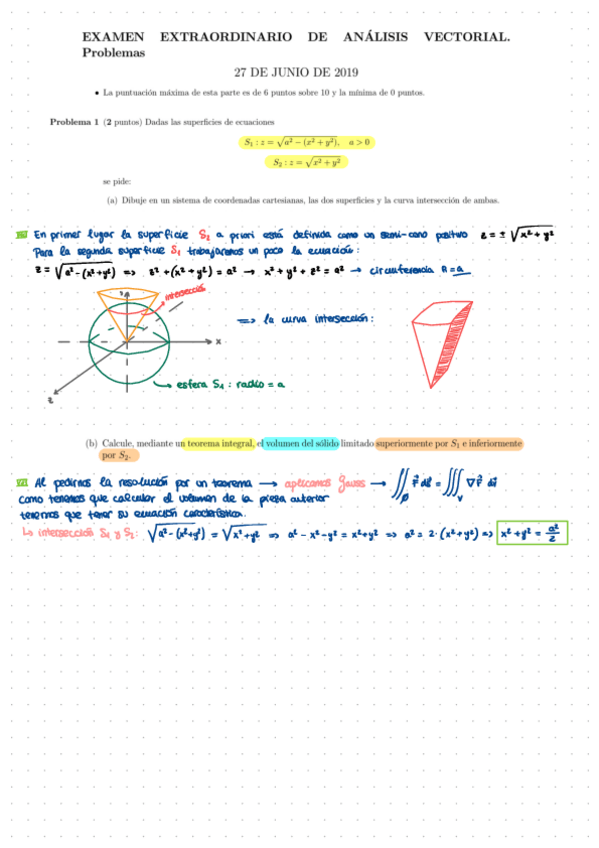 EXAMEN EXTRAORDINARIO DE ANÁLISIS VECTORIAL.
Problemas
27 DE JUNIO DE 2019
• La puntuación máxima de esta parte es de 6 puntos sobre 10 y la mínima de 0 puntos.
Problema 1 (2 puntos) Dadas las superficies de ecuaciones
S₁ : z = √(a² − (x² + y²)), a > 0
S₂ : z = √(x² + y²)
se pide:
(a) Dibuje en un sistema de coordenadas cartesianas, las dos superficies y la curva intersección de ambas.
En primer lugar la superficie S₂ a priori está definida como un semi-cono positivo z = ± √(x² + y²)
Para la segunda superficie S₁ trabajaremos un poco la ecuación :
z = √(a² - (x²+y²)) => z² + (x² + y²) = a² → x² + y² + z² = a² → circunferencia R=a
intersección
=> la curva intersección :
x
z
esfera S₁ : radio = a
(b) Calcule, mediante un teorema integral, el volumen del sólido limitado superiormente por S₁ e inferiormente
por S₂.
Al pedirnos la resolución por un teorema → aplicamos Gauss → ∬ F⃗ ds⃗ = ∭ᵥ ∇F⃗ dv⃗
como tenemos que calcular el volumen de la pieza anterior
tenemos que tener su ecuación característica.
↳ intersección S₁ y S₂ : √(a² - (x²+y²)) = √(x² + y²) => a² - x² - y² = x² + y² => a² = 2·(x² + y²) => x² + y² = a²/2